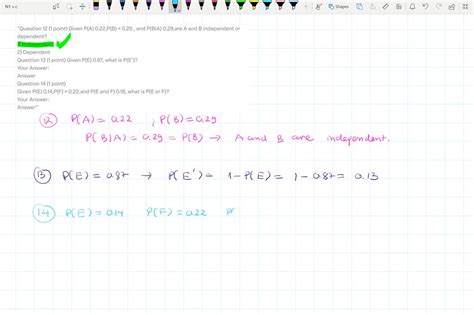 "Question 12 (1 point) Given P(A) 0.22,P(B) = 0.29 , and P(B/A) 0.29,are A and B independent or
dependent?
1 Independent
2) Dependent
Question 13 (1 point) Given P(E) 0.87, what is P(E')?
Your Answer:
Answer
Question 14 (1 point)
Given P(E) 0.14,P(F) = 0.22,and P(E and F) 0.18, what is P(E or F)?
Your Answer:
Answer"
12 P(A) = 0.22 , P(B) = 0.29
P(B|A) = 0.29 = P(B) → A and B are independent.
13 P(E) = 0.87 → P(E') = 1 - P(E) = 1 - 0.87 = 0.13
14 P(E) = 0.14 P(F) = 0.22 P
Shapes